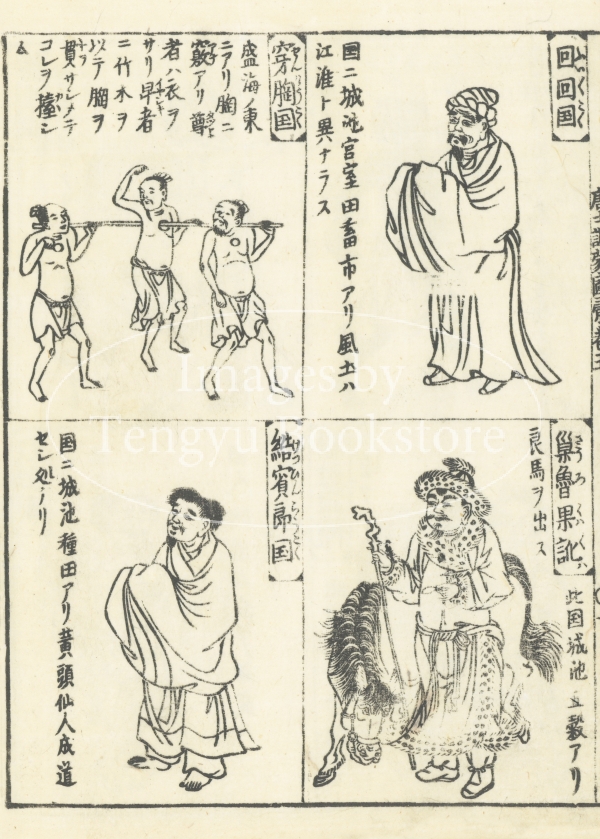 回回国
国ニ城池宮室田畜市アリ風土ハ
江淮ト異ナラス
穿胸国
盛海ノ東
ニアリ胸ニ
竅アリ尊
者ハ衣ヲ
サリ卑者
ニ竹木ヲ
以テ胸ヲ
貫
コレヲ擡シ
ム
巣魯果訛
此国城池五穀アリ
良馬ヲ出ス
結賓郎国
国ニ城池種田アリ黄頭仙人成道
セシ処ナリ
Images by
Tengyu Bookstore